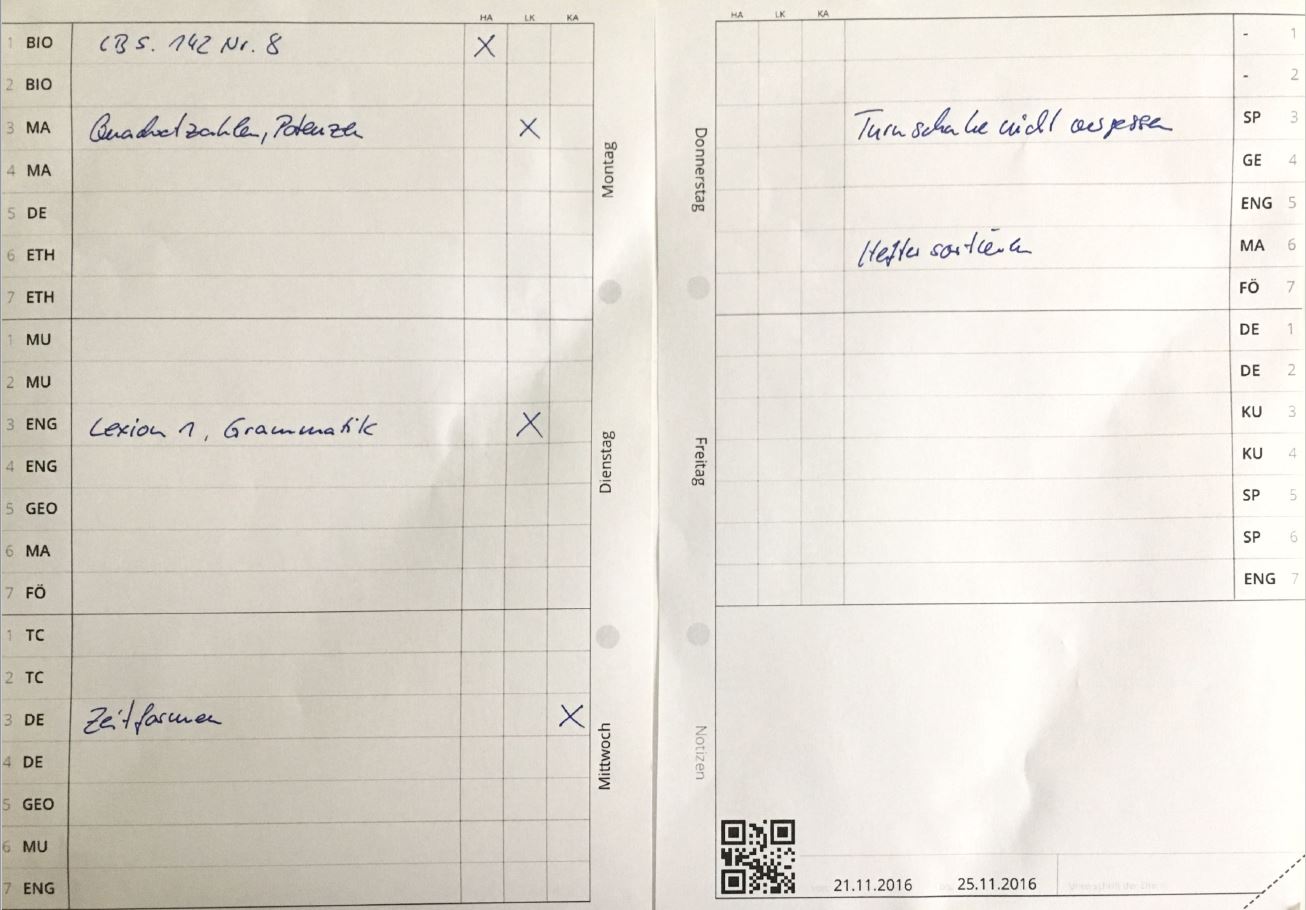 HA LK KA
1 BIO LB S. 142 Nr. 8 X
2 BIO
3 MA Quadratzahlen, Potenzen X
4 MA
5 DE
6 ETH
7 ETH
Montag
1 MU
2 MU
3 ENG Lexion 1, Grammatik X
4 ENG
5 GEO
6 MA
7 FÖ
Dienstag
1 TC
2 TC
3 DE Zeitformen X
4 DE
5 GEO
6 MU
7 ENG
Mittwoch
HA LK KA
- 1
- 2
Turnschuhe nicht vergessen SP 3
GE 4
ENG 5
Hefter sortieren MA 6
FÖ 7
Donnerstag
DE 1
DE 2
KU 3
KU 4
SP 5
SP 6
ENG 7
Freitag
Notizen
21.11.2016 25.11.2016